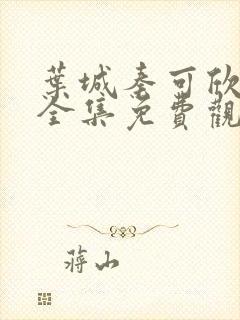 葉城秦可欣
全集免費觀
蔣山